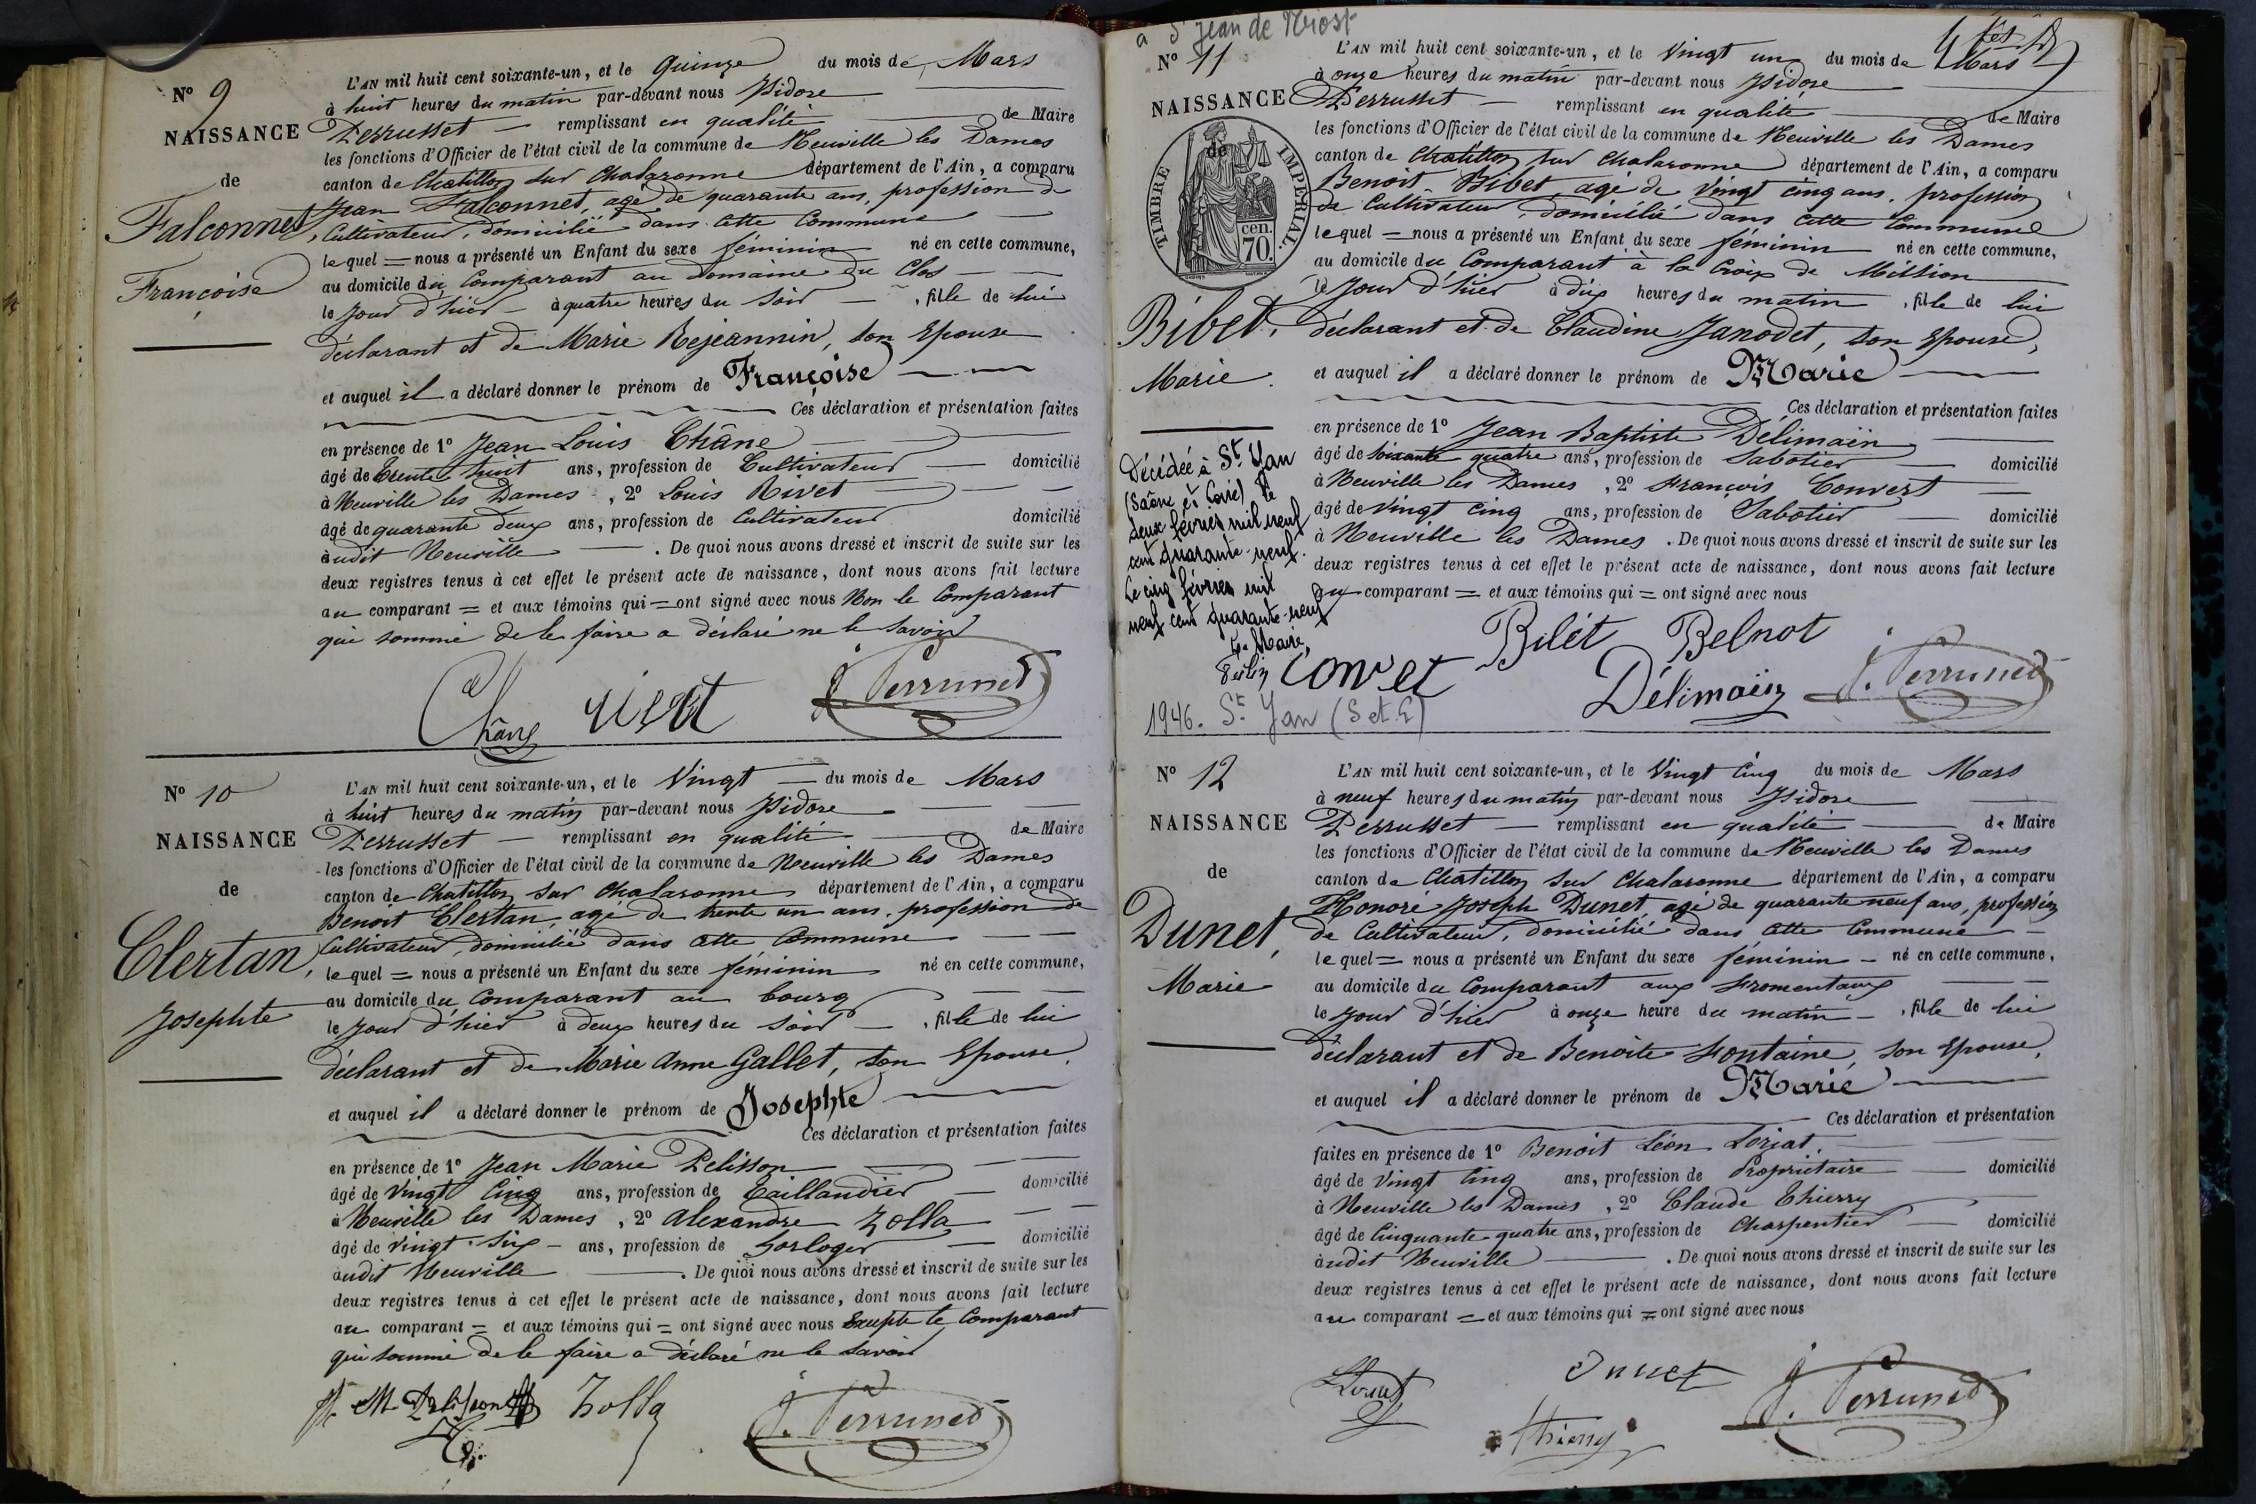 N° 9
NAISSANCE
de
Falconnet,
Françoise
L'AN mil huit cent soixante-un, et le Quinze du mois de Mars
à huit heures du matin par-devant nous Isidore
Perrusset remplissant en qualité de Maire
les fonctions d'Officier de l'état civil de la commune de Neuville les Dames
canton de Chatillon sur Chalaronne département de l'Ain, a comparu
Jean Falconnet, agé de quarante ans, profession de
Cultivateur, domicilié dans cette Commune
lequel = nous a présenté un Enfant du sexe féminin né en cette commune,
au domicile du Comparant au domaine du Clos
le Jour d'hier à quatre heures du Soir, fille de lui
déclarant et de Marie Rejeannin, son Epouse
et auquel il a déclaré donner le prénom de Françoise
Ces déclaration et présentation faites
en présence de 1° Jean Louis Châne
âgé de trente huit ans, profession de Cultivateur domicilié
à Neuville les Dames, 2° Louis Rivet
âgé de quarante deux ans, profession de Cultivateur domicilié
audit Neuville. De quoi nous avons dressé et inscrit de suite sur les
deux registres tenus à cet effet le présent acte de naissance, dont nous avons fait lecture
au comparant = et aux témoins qui = ont signé avec nous Non le Comparant
qui sommé de le faire a déclaré ne le savoir
Châne
J. Perrusset
N° 10
NAISSANCE
de
Clertan,
Josephte
L'AN mil huit cent soixante-un, et le Vingt du mois de Mars
à huit heures du matin par-devant nous Isidore
Perrusset remplissant en qualité de Maire
les fonctions d'Officier de l'état civil de la commune de Neuville les Dames
canton de Chatillon sur Chalaronne département de l'Ain, a comparu
Benoit Clertan, agé de trente un ans, profession de
Cultivateur, domicilié dans cette Commune
lequel = nous a présenté un Enfant du sexe féminin né en cette commune,
au domicile du Comparant au bourg
le Jour d'hier à deux heures du Soir, fille de lui
déclarant et de Marie Anne Gallet, son Epouse,
et auquel il a déclaré donner le prénom de Josephte
Ces déclaration et présentation faites
en présence de 1° Jean Marie Pelisson
âgé de Vingt Cinq ans, profession de Taillandier domicilié
à Neuville les Dames, 2° Alexandre Zolla
âgé de vingt-six ans, profession de horloger domicilié
audit Neuville. De quoi nous avons dressé et inscrit de suite sur les
deux registres tenus à cet effet le présent acte de naissance, dont nous avons fait lecture
au comparant = et aux témoins qui = ont signé avec nous Excepté le Comparant
qui sommé de le faire a déclaré ne le savoir
Zolla
J. Perrusset
a St Jean de Niost
N° 11
NAISSANCE
de
TIMBRE IMPERIAL.
70. cen.
Bibet,
Marie.
L'AN mil huit cent soixante-un, et le Vingt un du mois de Mars
à onze heures du matin par-devant nous Isidore
Perrusset remplissant en qualité de Maire
les fonctions d'Officier de l'état civil de la commune de Neuville les Dames
canton de Chatillon sur Chalaronne département de l'Ain, a comparu
Benoit Bibet, agé de Vingt cinq ans, profession
de Cultivateur, domicilié dans cette Commune
lequel = nous a présenté un Enfant du sexe féminin né en cette commune,
au domicile du Comparant à la Croix de Mission
le Jour d'hier à dix heures du matin, fille de lui
déclarant et de Claudine Janodet, son Epouse,
et auquel il a déclaré donner le prénom de Marie
Ces déclaration et présentation faites
en présence de 1° Jean Baptiste Délimain
âgé de soixante quatre ans, profession de Sabotier domicilié
à Neuville les Dames, 2° François Convert
âgé de Vingt Cinq ans, profession de Sabotier domicilié
à Neuville les Dames. De quoi nous avons dressé et inscrit de suite sur les
deux registres tenus à cet effet le présent acte de naissance, dont nous avons fait lecture
au comparant = et aux témoins qui = ont signé avec nous
Décédée à St Yan
(Saône et Loire) le
deux février mil neuf
cent quarante-neuf.
Le cinq février mil
neuf cent quarante-neuf
Le Maire,
1946. St Yan (S et L)
Convet Délimain
J. Perrusset
N° 12
NAISSANCE
de
Dunet,
Marie
L'AN mil huit cent soixante-un, et le Vingt Cinq du mois de Mars
à neuf heures du matin par-devant nous Isidore
Perrusset remplissant en qualité de Maire
les fonctions d'Officier de l'état civil de la commune de Neuville les Dames
canton de Chatillon sur Chalaronne département de l'Ain, a comparu
Honoré Joseph Dunet, agé de quarante neuf ans, profession
de Cultivateur, domicilié dans cette Commune
lequel = nous a présenté un Enfant du sexe féminin né en cette commune,
au domicile du Comparant aux Fromentaux
le Jour d'hier à onze heure du matin, fille de lui
déclarant et de Benoite Fontaine, son Epouse,
et auquel il a déclaré donner le prénom de Marie
Ces déclaration et présentation
faites en présence de 1° Benoit Léon Loriat
âgé de Vingt Cinq ans, profession de Propriétaire domicilié
à Neuville les Dames, 2° Claude Thierry
âgé de Cinquante quatre ans, profession de Charpentier domicilié
audit Neuville. De quoi nous avons dressé et inscrit de suite sur les
deux registres tenus à cet effet le présent acte de naissance, dont nous avons fait lecture
au comparant = et aux témoins qui = ont signé avec nous
Dunet
Thierry
J. Perrusset